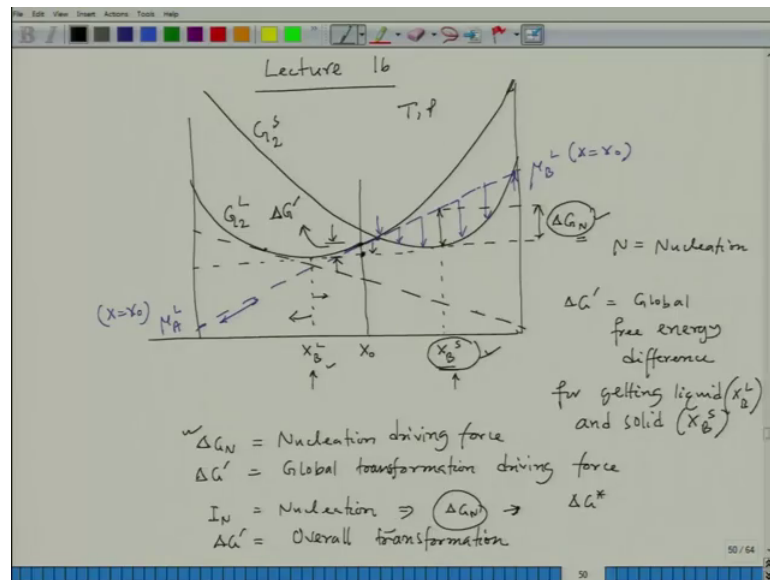 File Edit View Insert Actions Tools Help
B I
Lecture 16
T, P
G₂ˢ
μ_Bᴸ (x=x₀)
G₂ᴸ
ΔG'
ΔG_N
N = Nucleation
(x=x₀) μ_Aᴸ
ΔG' = Global
free energy
difference
for getting liquid (x_Bᴸ)
and solid (x_Bˢ)
x_Bᴸ x₀ x_Bˢ
ΔG_N = Nucleation driving force
ΔG' = Global transformation driving force
I_N = Nucleation ⇒ ΔG_N → ΔG*
ΔG' = Overall transformation
50 / 64
50